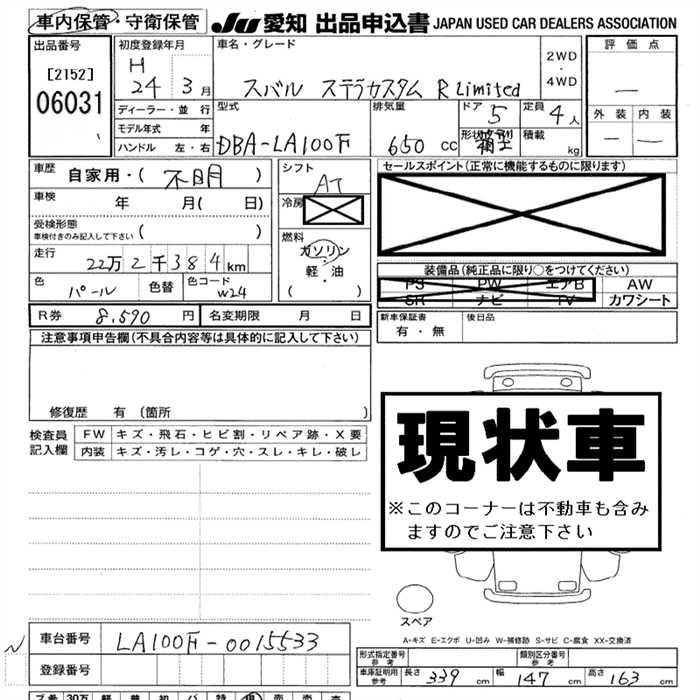 車内保管・守衛保管 JU 愛知 出品申込書 JAPAN USED CAR DEALERS ASSOCIATION
出品番号 初度登録年月 車名・グレード 2WD・4WD 評価点
[2152] H
06031 24 3月 スバル ステラカスタム R Limited —
ディーラー・並行 型式 排気量 ドア 5 定員 4人 外装 内装
モデル年式 年 DBA-LA100F 650 cc 形状 積載 — —
ハンドル 左・右 kg
車歴 自家用・( 不明 ) シフト AT セールスポイント(正常に機能するものに限ります)
車検 年 月( 日) 冷房
受検形態
車検付きのみ記入して下さい ( ) 燃料
ガソリン
走行 22万2千384km 軽・油 装備品(純正品に限り○をつけてください)
色 パール 色替 色コード W24 ( ) PS PW エアB AW
SR ナビ TV カワシート
R券 8,590 円 名変期限 月 日 新車保証書 後日品
有・無
注意事項申告欄(不具合内容等は具体的に記入して下さい)
修復歴 有 (箇所 )
検査員 FW キズ・飛石・ヒビ割・リペア跡・X要
記入欄 内装 キズ・汚レ・コゲ・穴・スレ・キレ・破レ
現状車
※このコーナーは不動車も含み
ますのでご注意下さい
スペア
A-キズ E-エクボ U-凹み W-補修跡 S-サビ C-腐食 XX-交換済
車台番号 LA100F-0015533
登録番号 形式指定番号 参考 類別区分番号 参考
車庫証明用 参考 長さ 339 cm 幅 147 cm 高さ 163 cm